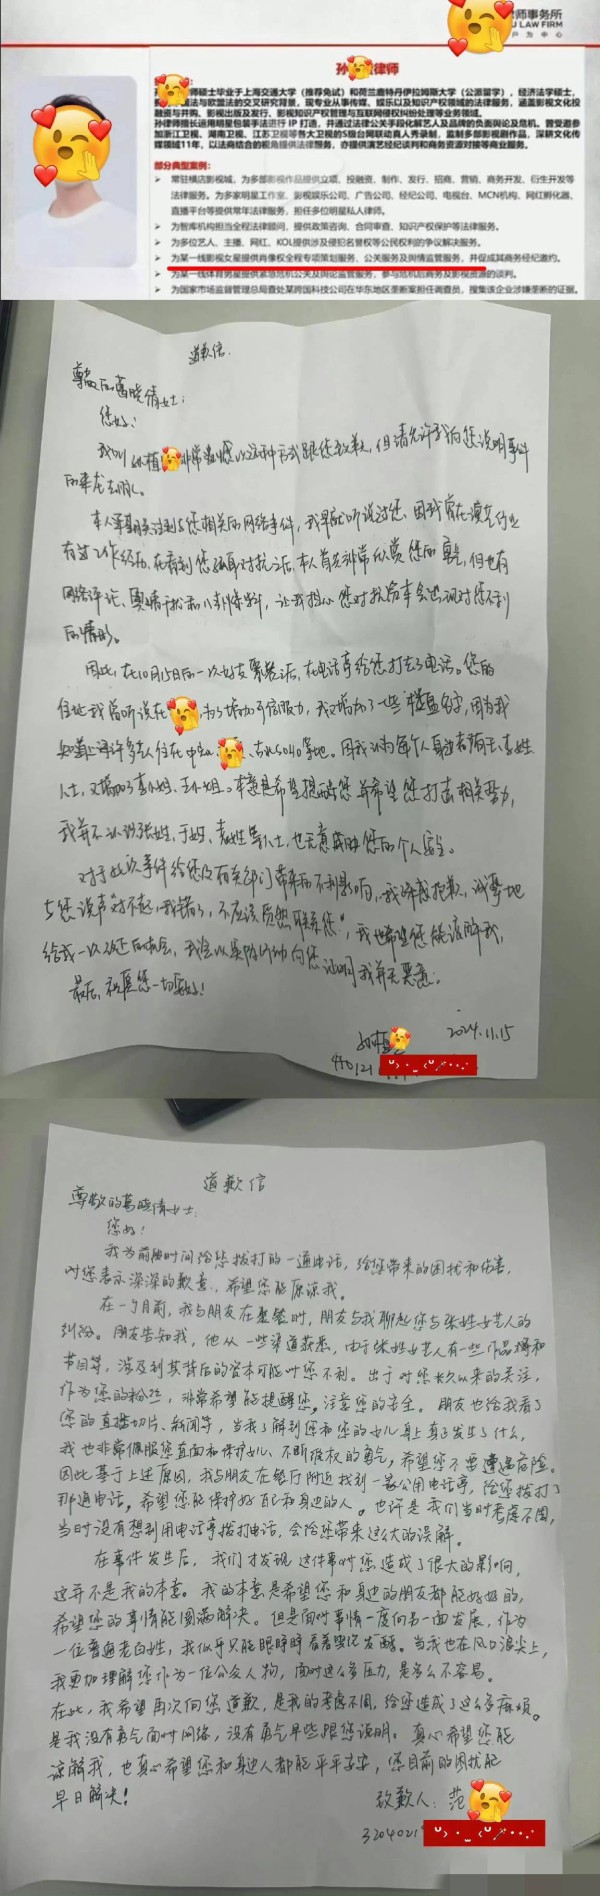 律师事务所
LAW FIRM
户 为 中 心
孙 律师
师硕士毕业于上海交通大学（推荐免试）和荷兰鹿特丹伊拉姆斯大学（公派留学），经济法学硕士，
法与欧盟法的交叉研究背景，现专业从事传媒、娱乐以及知识产权领域的法律服务，涵盖影视文化投
融资与并购、影视出版及发行、影视知识产权管理与互联网侵权纠纷处理等业务领域。
孙律师擅长运用明星包装手法进行 IP 打造，并通过法律公关手段化解艺人及品牌的负责舆论及危机。曾受邀参
加浙江卫视、湖南卫视、江苏卫视等各大卫视的S级台网联动真人秀录制，监制多部影视剧作品，深耕文化传
媒领域11年，以法商结合的视角提供法律服务，亦提供演艺经纪谈判和商务资源对接等商业服务。
部分典型案例：
常驻横店影视城，为多部影视作品提供立项、投融资、制作、发行、招商、营销、商务开发、衍生开发等
法律服务。为多家明星工作室、影视娱乐公司、广告公司、经纪公司、电视台、MCN机构、网红孵化器、
直播平台等提供常年法律服务，担任多位明星私人律师。
为智库机构担当全程法律顾问，提供政策咨询、合同审查、知识产权保护等法律服务。
为多位艺人、主播、网红、KOL提供涉及侵犯名誉权等公民权利的争议解决服务。
为某一线影视女星提供肖像权全程专项策划服务、公关服务及舆情监管服务，并促成其商务经纪邀约。
为某一线体育男星提供紧急危机公关及舆论监管服务，参与危机后商务及影视资源的谈判。
为国家市场监督管理总局查处某跨国科技公司在华东地区垄断案担任调查员，搜集该企业涉嫌垄断的证据。
道歉信
尊敬的葛晓倩女士：
您好！
我叫孙植 非常抱憾以这种方式跟您致歉，但请允许我向您说明事件
的来龙去脉。
本人早期关注到与您相关的网络事件，我早就听说过您，因我曾在演艺行业
有过工作经历，在看到您孤身对抗之后，本人首先非常欣赏您的勇气，但也有
网络评论、舆情干扰和八卦爆料，让我担心您对抗资本会出现对您不利
的情形。
因此，在10月15日的一次好友聚餐之后，在电话亭给您打去了电话。您的
住址我曾听说在 为了增加可信服力，我又增加了一些楼盘名字，因为我
知道许多人住在中 SOHO等地。因我认为每个人身边都有于、袁姓
人士，又增加了袁小姐、于小姐。本意是希望提醒您并希望您打击相关势力，
我并不认识张姓、于姓、袁姓等人士，也无意威胁您的个人安全。
对于此次事件给您及有关部门带来的不利影响，我深感抱歉，诚挚地
与您说声“对不起，我错了，不应该贸然联系您”，我也希望您能谅解我，
给我一次改正的机会，我会以实际行动向您证明我并无恶意。
最后，祝愿您一切安好！
孙植
2024.11.15
430121
道歉信
尊敬的葛晓倩女士：
您好！
我为前段时间给您拨打的一通电话，给您带来的困扰和伤害，
对您表示深深的歉意，希望您能原谅我。
在一个月前，我与朋友在聚餐时，朋友与我聊起您与张姓女艺人的
纠纷。朋友告知我，他从一些渠道获悉，由于张姓女艺人有一些作品播和
节目等，涉及到其背后的资本可能对您不利。出于对您长久以来的关注，
作为您的粉丝，非常希望能提醒您，注意您的安全。朋友也给我看了
您的直播切片、新闻等，当我了解到您和您的女儿身上真了发生了什么，
我也非常佩服您直面和保护女儿，不断维权的勇气，希望您不要遭遇危险。
因此基于上述原因，我与朋友在餐厅附近找到一家公用电话亭，给您拨打了
那通电话，希望您能保护好自己和身边的人。也许是我们当时考虑不周，
当时没有想到用电话亭拨打电话，会给您带来这么大的误解。
在事件发生后，我们才发现这件事对您造成了很大的影响，
这并不是我的本意。我的本意是希望您和身边的朋友都能好好的，
希望您的事情能圆满解决。但是面对事情一度向另一面发展，作为
一位普通老百姓，我似乎只能眼睁睁看着舆论发酵。当我也在风口浪尖上，
我更加理解您作为一位公众人物，面对这么多压力，是多么不容易。
在此，我希望再次向您道歉，是我的考虑不周，给您造成了这么多麻烦。
是我没有勇气面对网络，没有勇气早些跟您说明。真心希望您能
谅解我，也真心希望您和身边人都能平平安安，您目前的困扰能
早日解决！
致歉人：范
3204021